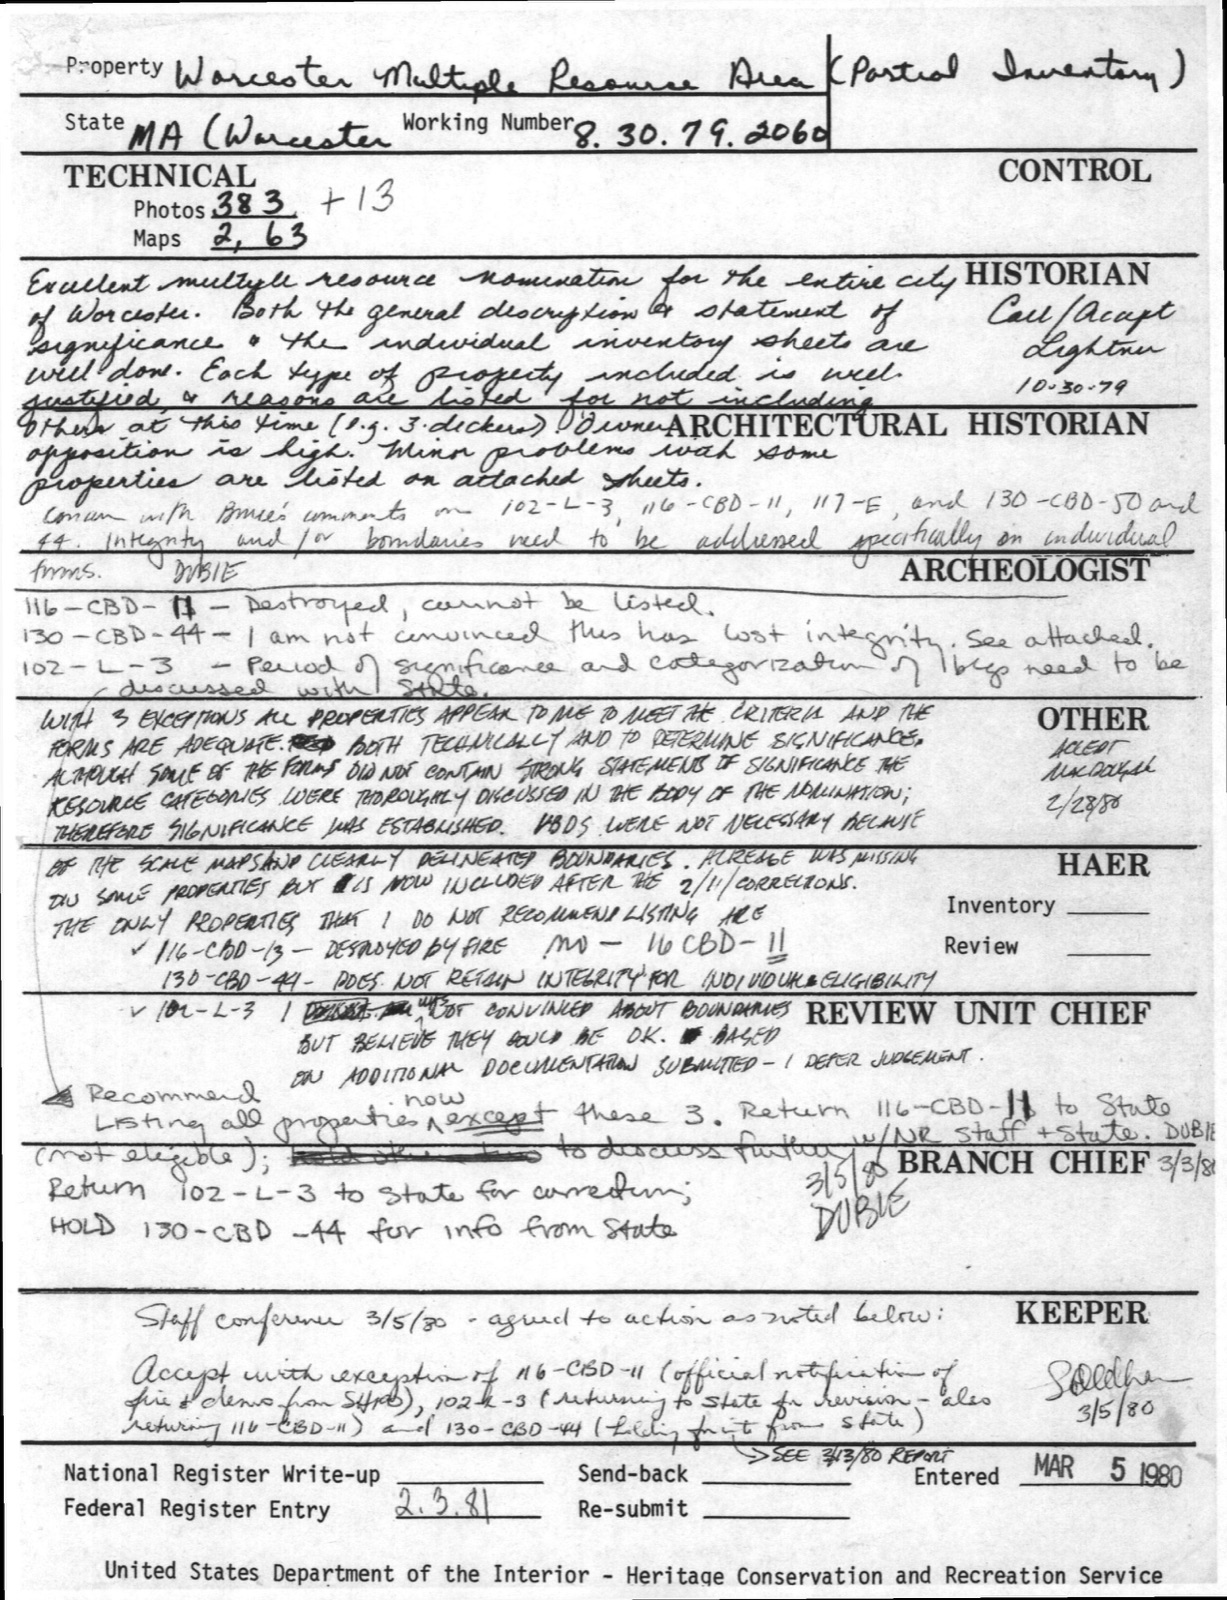 Property Worcester Multiple Resource Area (Partial Inventory)
State MA (Worcester Working Number 8.30.79.2060
TECHNICAL CONTROL
Photos 383 + 13
Maps 2, 63
Excellent multiple resource nomination for the entire city HISTORIAN
of Worcester. Both the general description & statement of Call/Accept
significance & the individual inventory sheets are Lightner
well done. Each type of property included is well 10-30-79
justified, & reasons are listed for not including
others at this time (e.g. 3-deckers). Owner ARCHITECTURAL HISTORIAN
opposition is high. Minor problems with some
properties are listed on attached sheets.
Concur with Bruce's comments on 102-L-3, 116-CBD-11, 117-E, and 130-CBD-50 and
44. Integrity and/or boundaries need to be addressed specifically on individual
forms. DUBIE ARCHEOLOGIST
116-CBD-11 - Destroyed, cannot be listed.
130-CBD-44 - I am not convinced this has lost integrity. See attached.
102-L-3 - Period of significance and categorization of bldgs need to be
discussed with State.
WITH 3 EXCEPTIONS ALL PROPERTIES APPEAR TO ME TO MEET THE CRITERIA AND THE OTHER
FORMS ARE ADEQUATE. BOTH TECHNICALLY AND TO DETERMINE SIGNIFICANCE. ACCEPT
ALTHOUGH SOME OF THE FORMS DID NOT CONTAIN STRONG STATEMENTS OF SIGNIFICANCE THE MACDOUGAL
RESOURCE CATEGORIES WERE THOROUGHLY DISCUSSED IN THE BODY OF THE NOMINATION; 2/28/80
THEREFORE SIGNIFICANCE WAS ESTABLISHED. VBDS WERE NOT NECESSARY BECAUSE
OF THE SCALE MAPS AND CLEARLY DELINEATED BOUNDARIES. ACREAGE WAS MISSING HAER
ON SOME PROPERTIES BUT IS NOW INCLUDED AFTER THE 2/11/CORRECTIONS.
THE ONLY PROPERTIES THAT I DO NOT RECOMMEND LISTING ARE Inventory
✓ 116-CBD-13 - DESTROYED BY FIRE NO - 116 CBD-11 Review
130-CBD-44 - DOES NOT RETAIN INTEGRITY FOR INDIVIDUAL ELIGIBILITY
✓ 102-L-3 I WAS NOT CONVINCED ABOUT BOUNDARIES REVIEW UNIT CHIEF
BUT BELIEVE THEY COULD BE OK. BASED
ON ADDITIONAL DOCUMENTATION SUBMITTED - I DEFER JUDGEMENT.
Recommend
Listing all properties now except these 3. Return 116-CBD-11 to State
(not eligible); to discuss further w/NR staff + State. DUBIE
BRANCH CHIEF 3/3/80
Return 102-L-3 to State for correction; 3/5/80
HOLD 130-CBD-44 for info from State DUBIE
Staff conference 3/5/80 - agreed to action as noted below: KEEPER
Accept with exception of 116-CBD-11 (official notification of
fire & demo from SHPO), 102-L-3 (returning to State for revision - also
returning 116-CBD-11) and 130-CBD-44 (holding for it from State) 3/5/80
→ SEE 3/13/80 REPORT
National Register Write-up Send-back Entered MAR 5 1980
Federal Register Entry 2.3.81 Re-submit
United States Department of the Interior - Heritage Conservation and Recreation Service